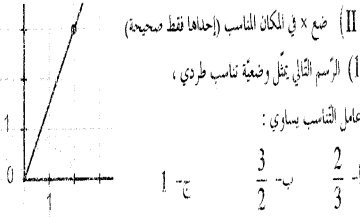 II) ضع × في المكان المناسب (إحداها فقط صحيحة)
أ) الرّسم التّالي يمثّل وضعيّة تناسب طردي ،
عامل التّناسب يساوي :
أ- 2/3 ب- 3/2 ج- 1
1
0
1